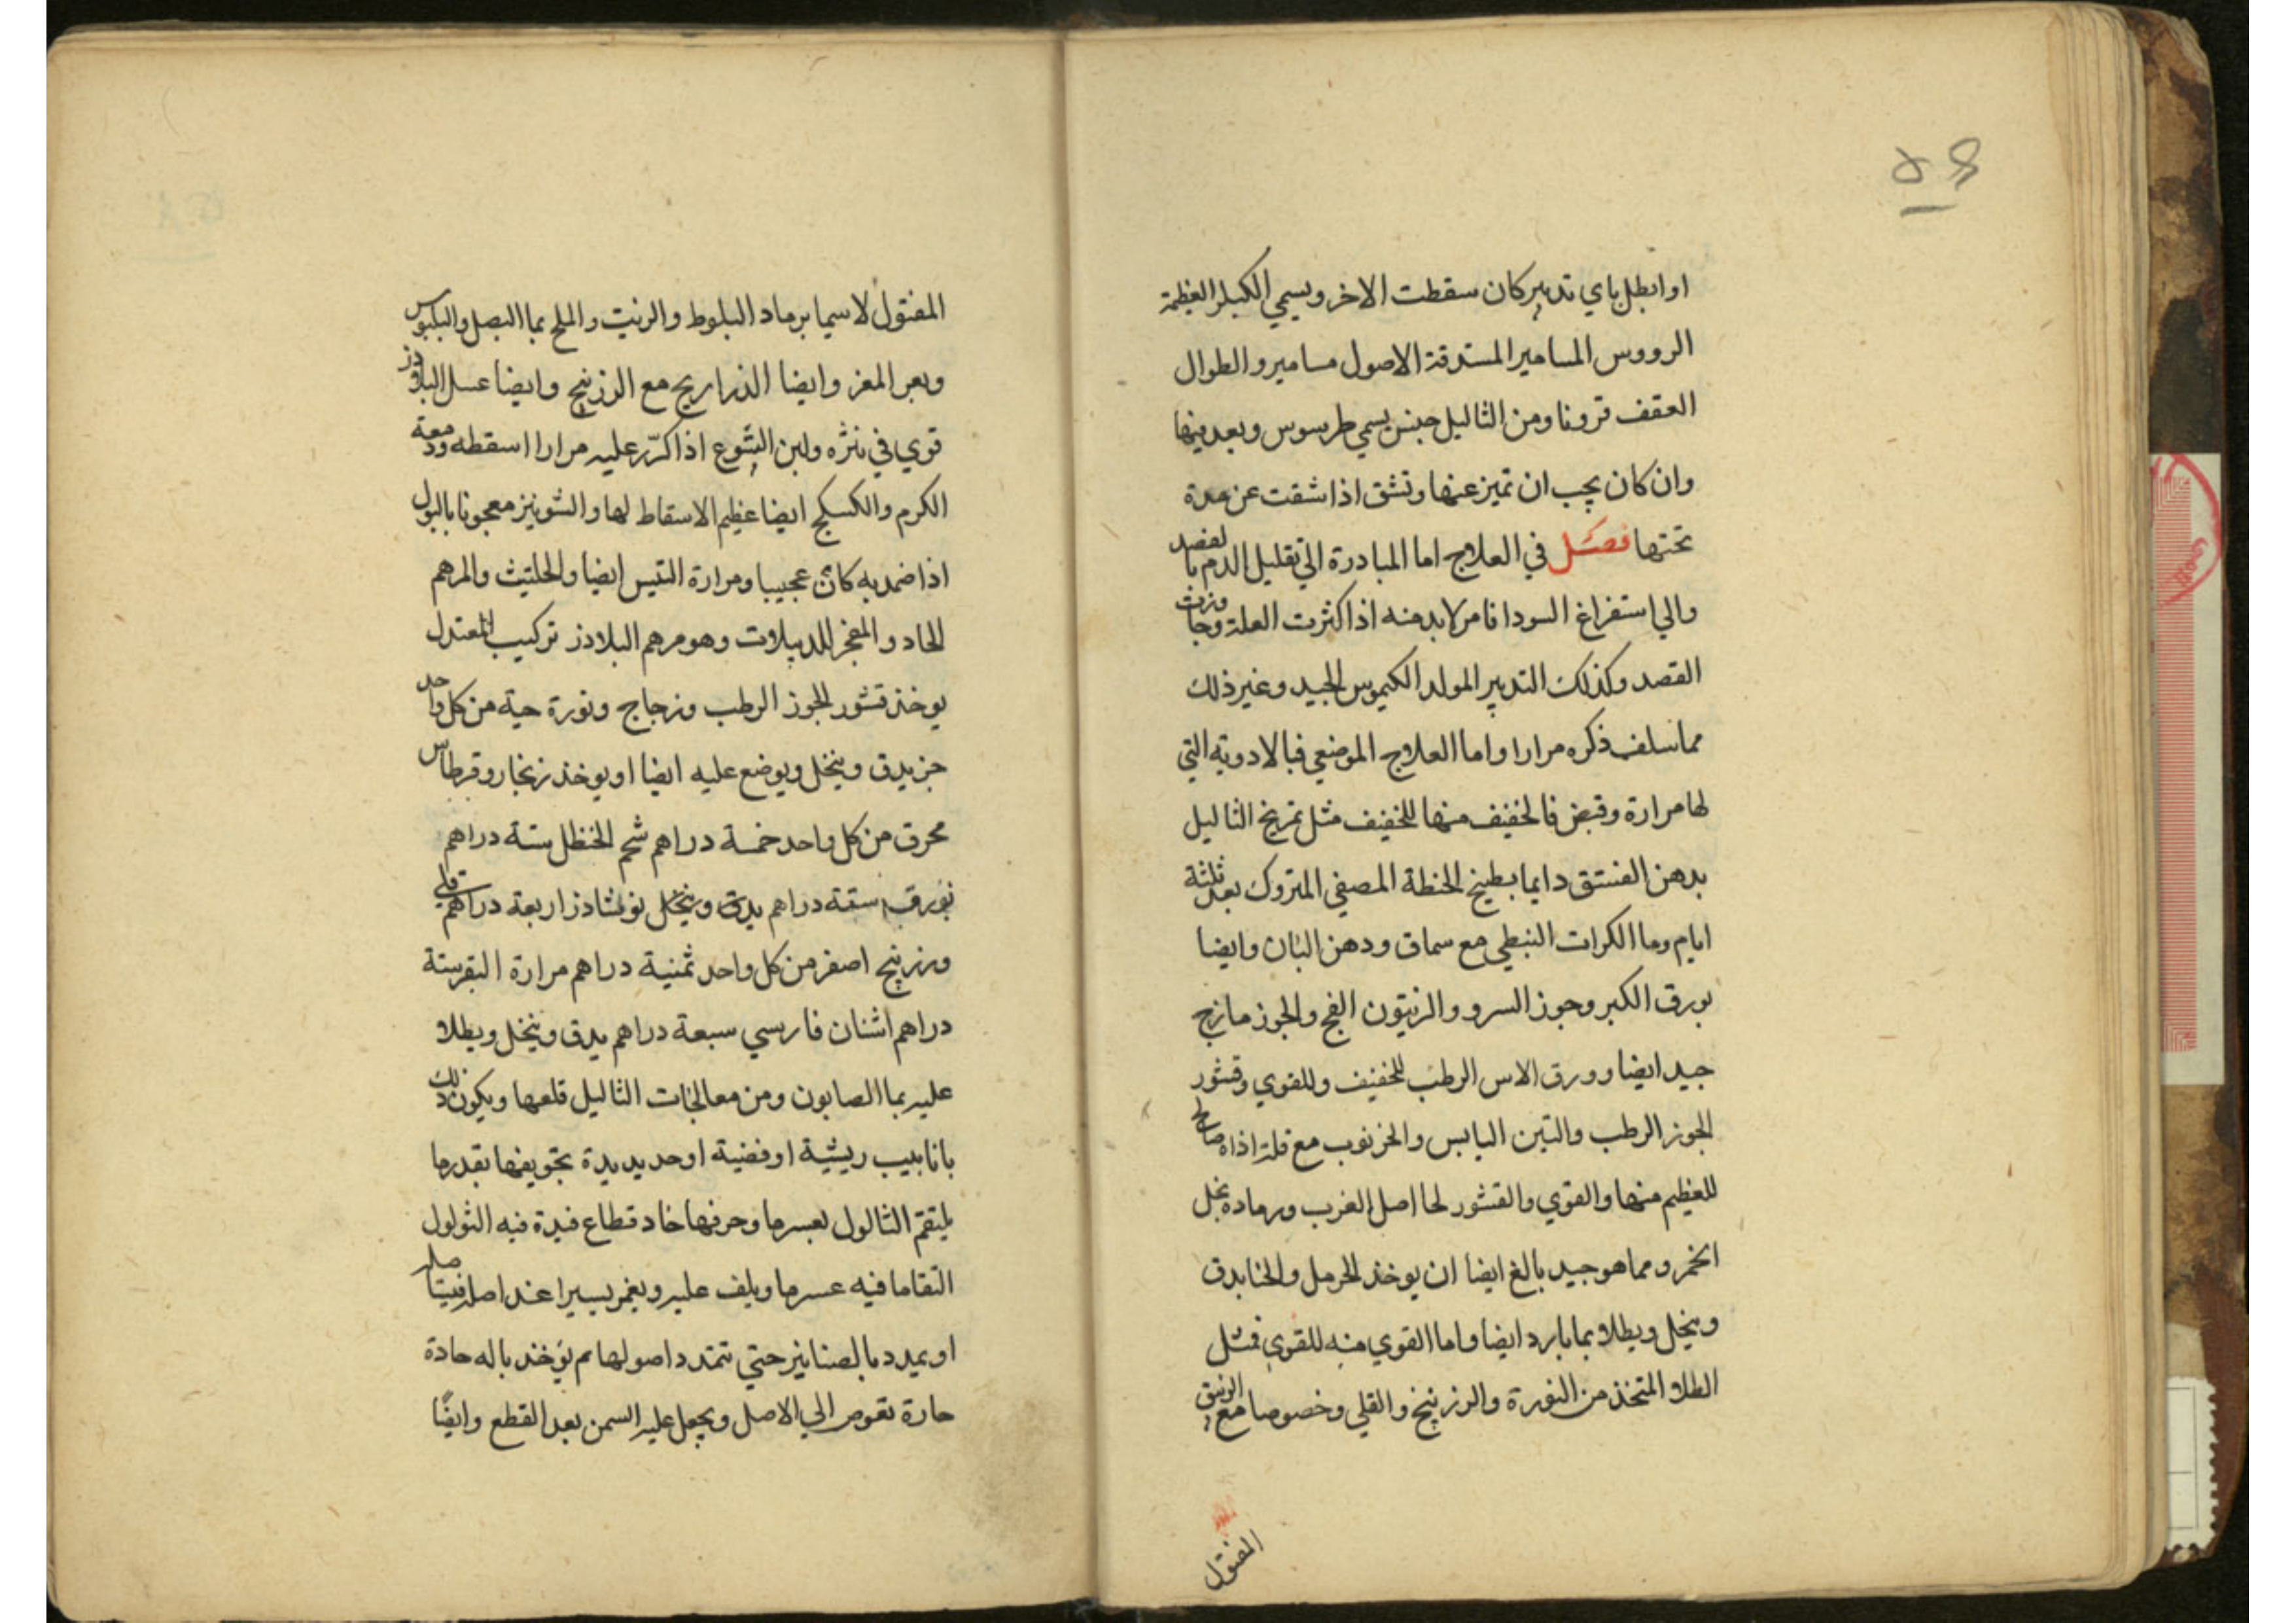 اوابطل باي تدبير كان سقطت الاخر ويسمي الكبار العظيمة
الرووس المسامير المستدقة الاصول مسامير والطوال
العقف قرونا ومن الثاليل جنس يسمي طرسوس وبعد فيها
وان كان يجب ان تميز عنها وتشق اذا شقت عن مدة
تحتها فصل في العلاج اما المبادرة الي تقليل الدم بالفصد
والي استفراغ السودا فامر لا بد منه اذا كثرت العلة وجاوزت
القصد وكذلك التدبير المولد الكيموس الجيد وغير ذلك
مما سلف ذكره مرارا واما العلاج الموضعي فبالادوية التي
لها مرارة وقبض فالخفيف منها للخفيف مثل تمريخ الثاليل
بدهن الفستق دايما بطبيخ الحنطة المصفي المتروك بعد ثلثة
ايام وما الكرات النبطي مع سماق ودهن البان وايضا
بورق الكبر وجوز السرو والزيتون الفج والجوز مازج
جيد ايضا وورق الاس الرطب للخفيف وللقوي وقشور
الجوز الرطب والتين اليابس والخرنوب مع قلة اذاه صالح
للعظيم منها والقوي والقشور لحا اصل الغرب ورماده بخل
الخمر ومما هو جيد بالغ ايضا ان يوخذ الحرمل والحنا يدق
وينخل ويطلا بما بارد ايضا واما القوي منه للقوي فمثل
الطلا المتخذ من النورة والزرنيخ والقلي وخصوصا مع الزيبق
المفتول
المفتول لاسيما برماد البلوط والزيت والملح بما البصل والبلبوس
وبعر المعز وايضا الذراريح مع الزرنيخ وايضا عسل البلاذر
قوي في نثره ولبن اليتوع اذا كرّر عليه مرارا اسقطه ودمعة
الكرم والكسكج ايضا عظيم الاسقاط لها والشونيز معجونا بالبول
اذا ضمد به كان عجيبا ومرارة التيس ايضا والحلتيث والمرهم
الحاد والمفجر للدبيلات وهو مرهم البلاذر تركيب لمعتدل
يوخذ قشور الجوز الرطب وزجاج ونورة حية من كل واحد
جز يدق وينخل ويوضع عليه ايضا او يوخذ زنجار وقرطاس
محرق من كل واحد خمسة دراهم شحم الحنظل ستة دراهم
بورق ستة دراهم يدق وينخل نوشادر اربعة دراهم قلي
وزرنيخ اصفر من كل واحد ثمنية دراهم مرارة البقر ستة
دراهم اشنان فارسي سبعة دراهم يدق وينخل ويطلا
عليه بما الصابون ومن معالجات الثاليل قلعها ويكون ذلك
بانابيب ريشية او فضية او حديدية تجويفها بقدر ما
يلتقم الثالول بعسر ما وحرفها حاد قطاع فيدة فيه الثولول
التقاما فيه عسر ما ويلف عليه ويغمز يسيرا عند اصله فيستاصله
او يمدد بالصنانير حتي تتمدد اصولها ثم يوخذ باله حادة
حارة تغوص الي الاصل ويجعل عليه السمن بعد القطع وايضًا